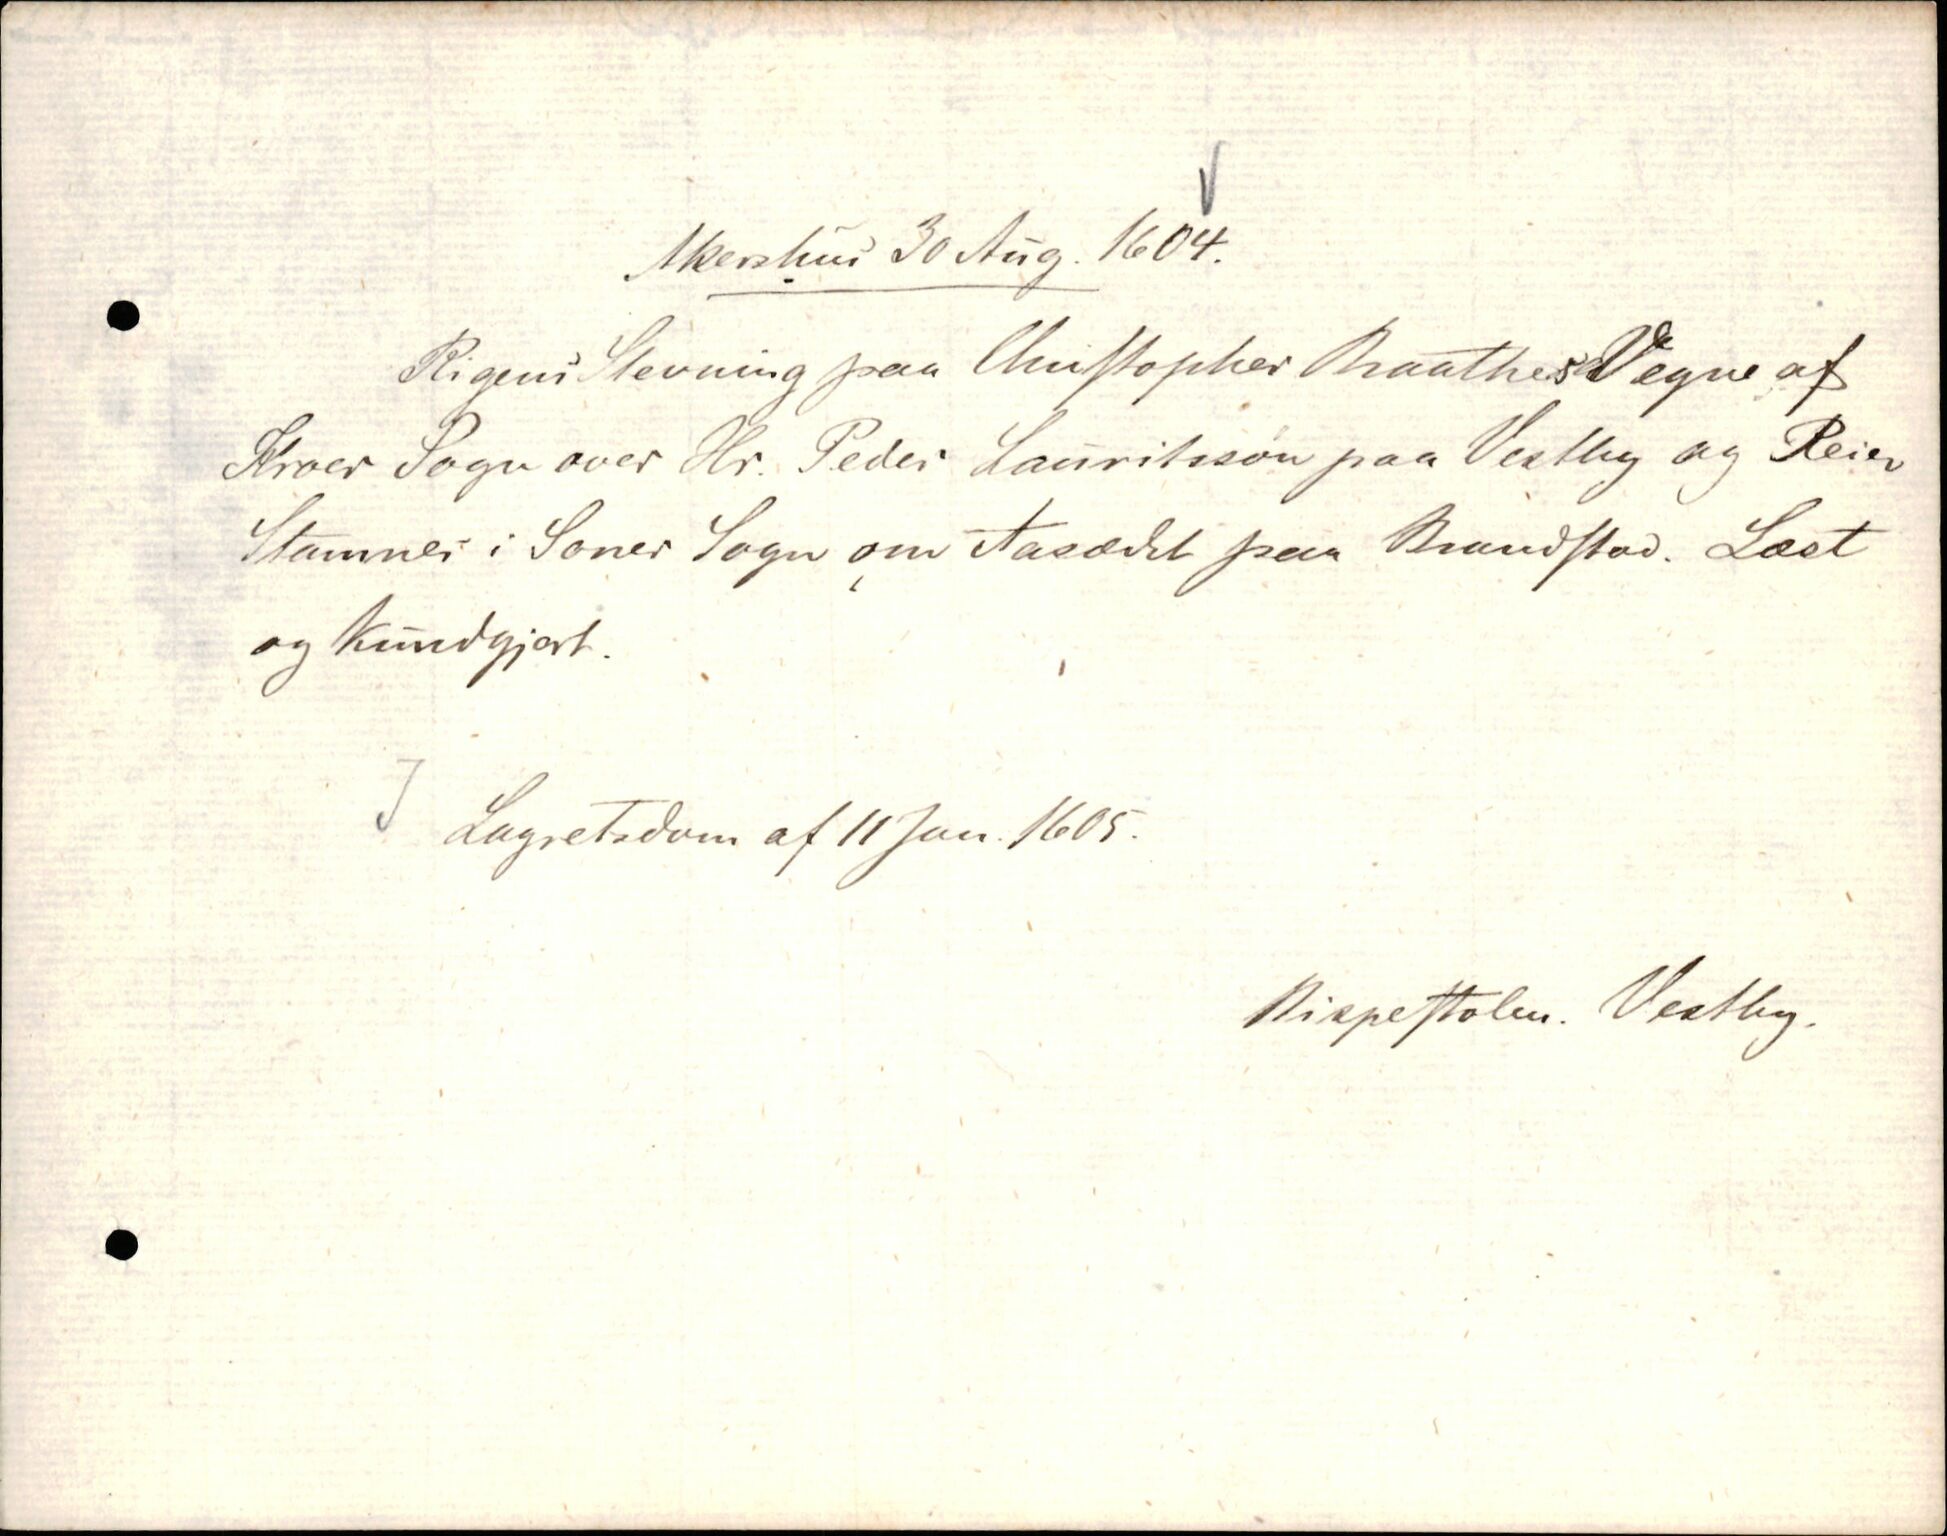 Akershus 30 Aug. 1604.
Rigens Stevning paa Christopher Braathes Vegne af
Kroer Sogn over Hr. Peder Lauritssøn paa Vestby og Reier
Stamnes i Soner Sogn om Aasædet paa Brandstad. Læst
og kundgjort.
Lagretsdom af 11 Jan. 1605.
Bispestolen. Vestby.